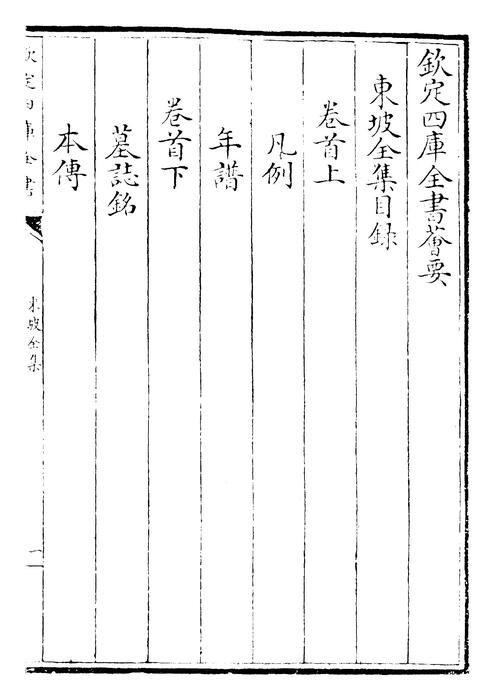 欽定四庫全書薈要
東坡全集目録
卷首上
凡例
年譜
卷首下
墓誌銘
本傳
欽定四庫全書
東坡全集
一